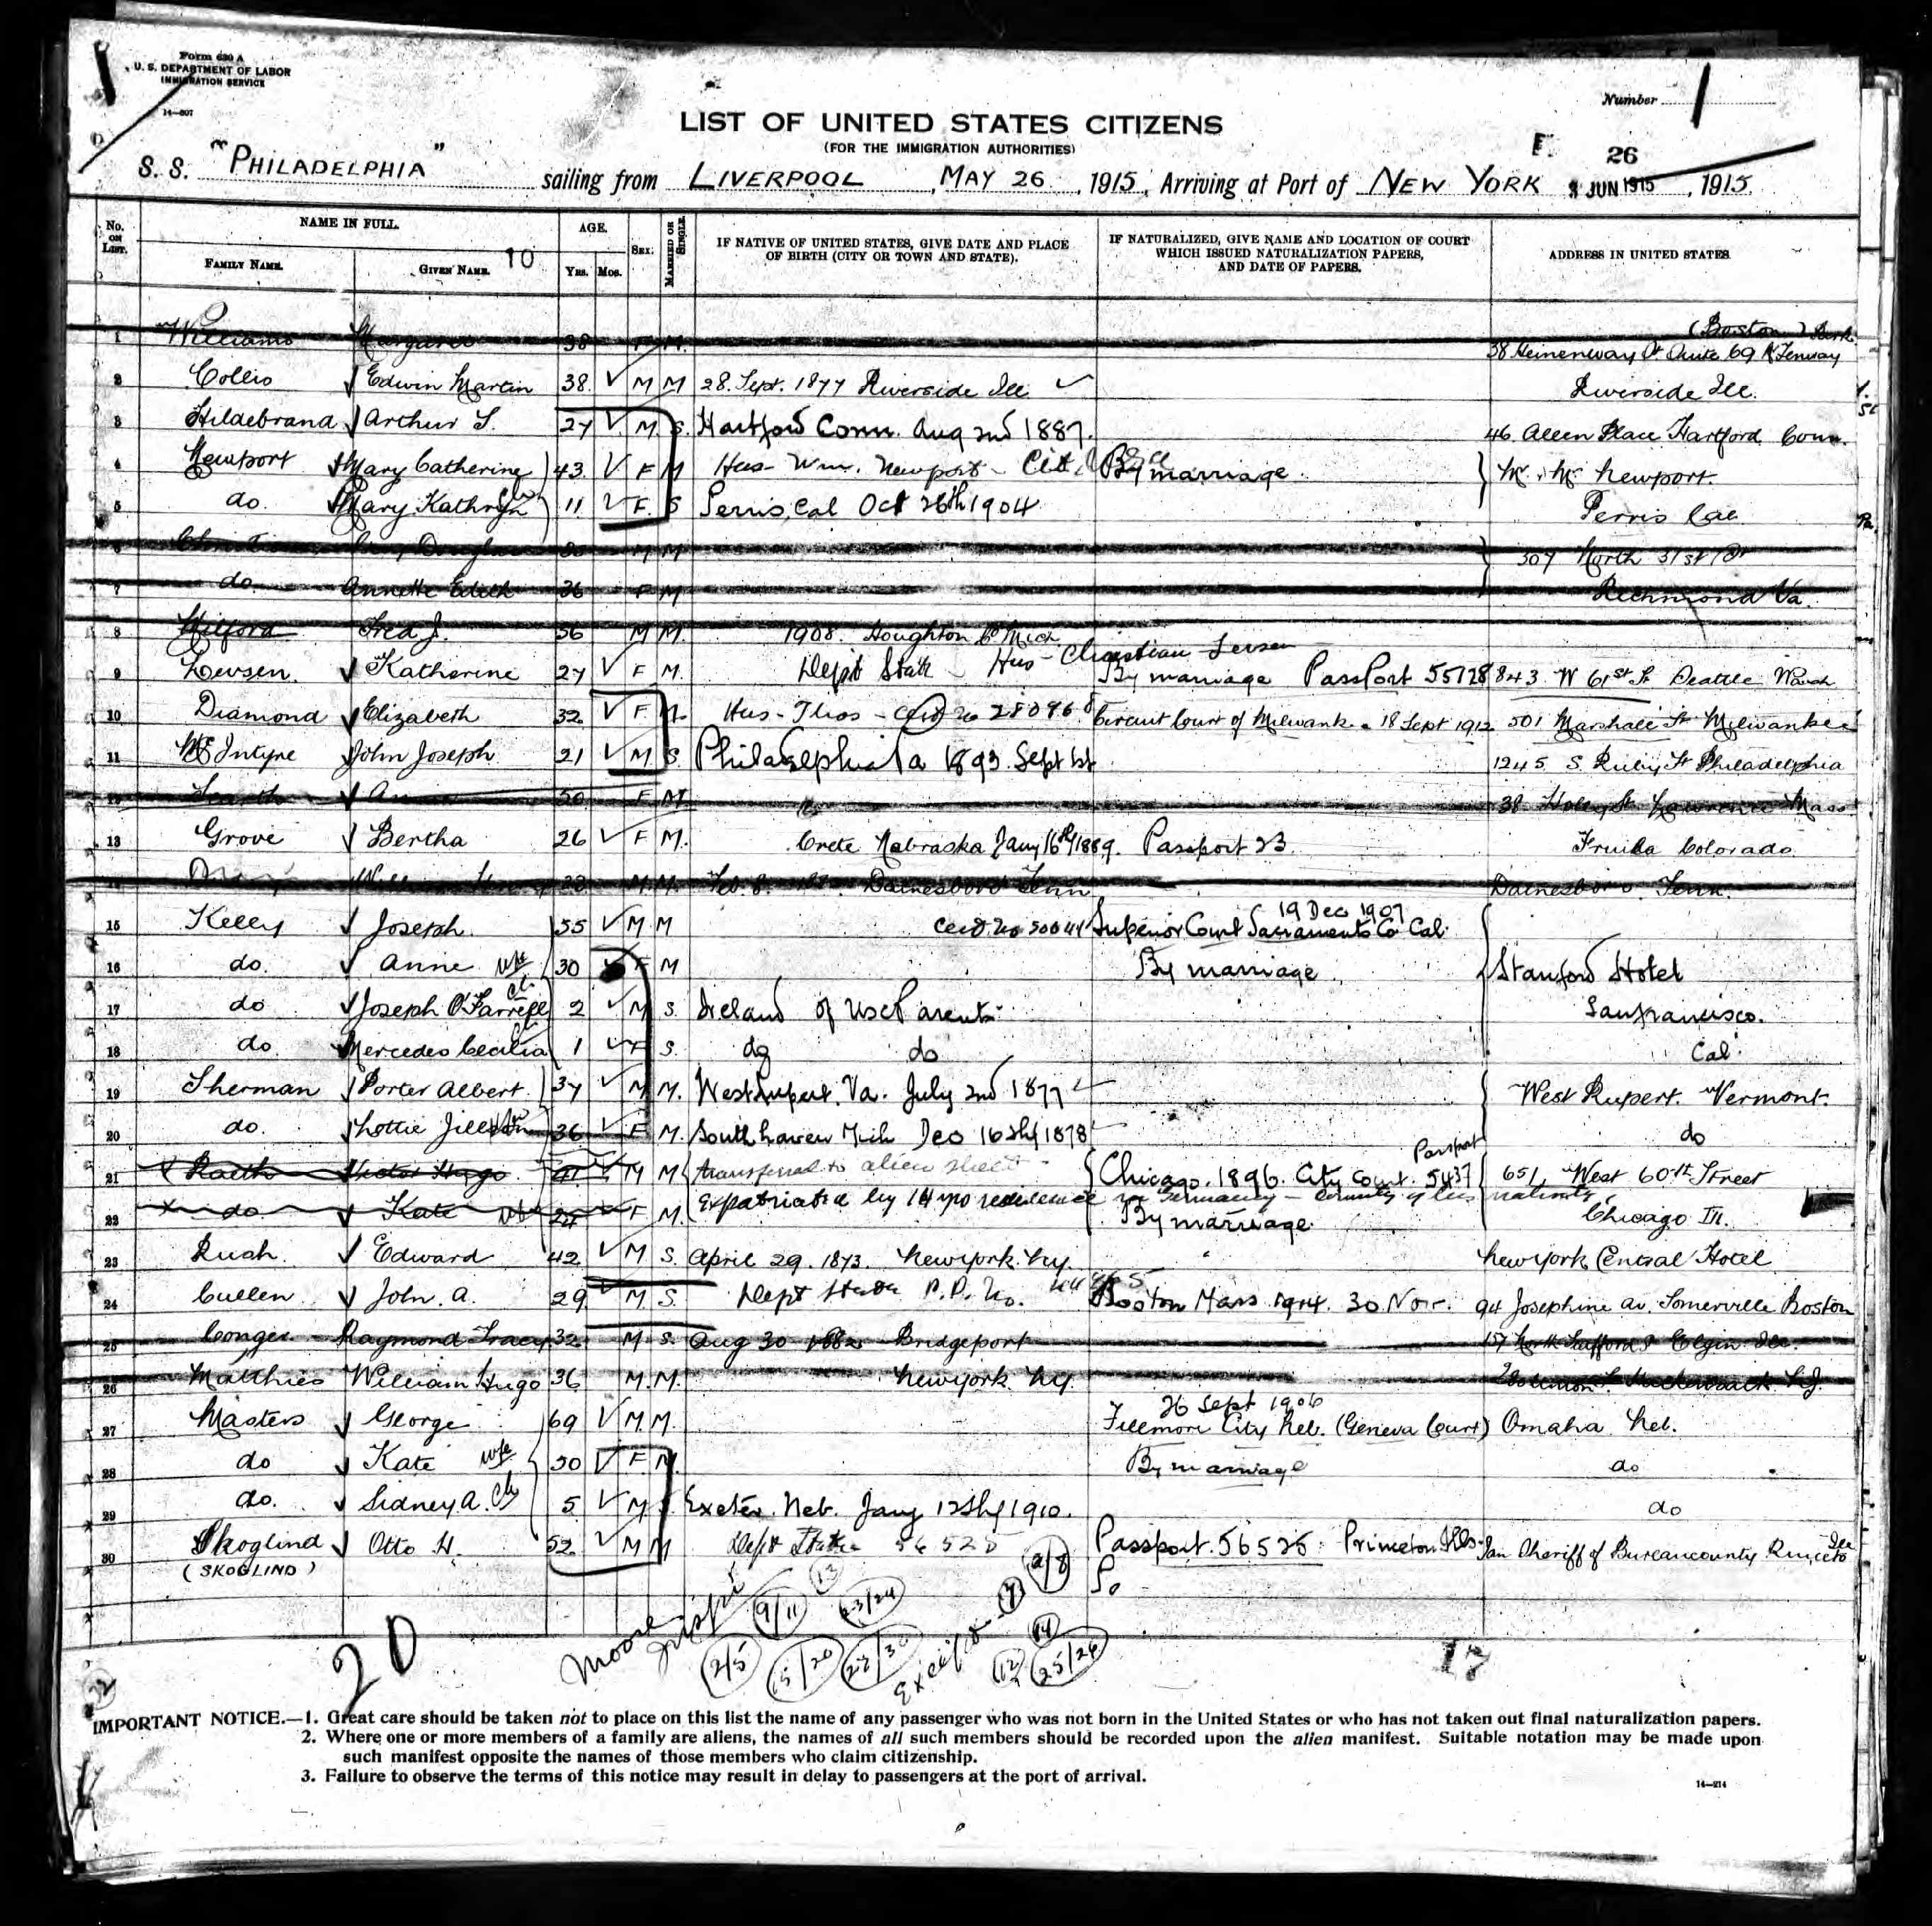 Form 630 A
U. S. DEPARTMENT OF LABOR
IMMIGRATION SERVICE
14—207
Number 1
LIST OF UNITED STATES CITIZENS
(FOR THE IMMIGRATION AUTHORITIES)
S. S. "PHILADELPHIA" sailing from LIVERPOOL, MAY 26, 1915, Arriving at Port of NEW YORK JUN 1915, 1915.
26
No. ON LIST.
NAME IN FULL.
FAMILY NAME.
GIVEN NAME.
10
AGE.
YRS. MOS.
SEX.
MARRIED OR SINGLE.
IF NATIVE OF UNITED STATES, GIVE DATE AND PLACE OF BIRTH (CITY OR TOWN AND STATE).
IF NATURALIZED, GIVE NAME AND LOCATION OF COURT WHICH ISSUED NATURALIZATION PAPERS, AND DATE OF PAPERS.
ADDRESS IN UNITED STATES.
1 Williams Margaret 38 F M. (Boston)
2 Collis Edwin Martin 38. M M 28. Sept. 1877 Riverside Ill Riverside Ill.
3 Hildebrand Arthur S. 27 M. S. Hartford Conn. Aug 2nd 1887. 46 Allen Place Hartford Conn.
4 Newport Mary Catherine 43. F M Hus- Wm. Newport - By marriage. Newport.
5 do. Mary Kathryn 11 F. S Perris, Cal Oct 26th 1904 Perris Cal
6 M M 307 North 31st St
7 do. Annette Edith 36 F M Richmond Va.
8 Milford Fred J. 36 M M. 1908. Houghton Co Mich
9 Katherine 27 F M. Dept State Hus - Christian By marriage Passport 55728 843 W 61st St Seattle Wash
10 Diamond Elizabeth 32 F M. Hus - Thos - Circuit Court of Milwauk. 18 Sept 1912 501 Marshall St Milwaukee
11 McIntyre John Joseph 21 M S. Philadelphia Pa 1893 Sept 1st 1245 S. Ruby St Philadelphia
12 50 F M 38 St. Lawrence Mass
13 Grove Bertha 26 F M. Crete Nabraska Jany 16th 1889. Passport 23. Fruita Colorado
14 M M. Feb. 8. Dainesboro Tenn Dainesboro Tenn.
15 Kelly Joseph 55 M M Cert No 50044 Superior Court Sacramento Co Cal. 19 Dec 1907
16 do. Anne wfe 30 F M By marriage Stanford Hotel
17 do Joseph O'Farrell 2 M S. Ireland of USC Parents San francisco.
18 do. Mercedes Cecilia 1 F S. do do Cal.
19 Sherman Porter Albert. 37 M M. West Rupert. Va. July 2nd 1877 West Rupert. Vermont.
20 do. Lottie 36 F M. South haven Mich Dec 16th 1878 do
21 Victor Hugo M M transferred to alien sheet Chicago. 1896. City Court. Passport 5437 651, West 60th Street
22 do. Kate wfe 27 F M. Expatriated by 14 yrs residence in Germany - country of his nativity. By marriage Chicago Ill.
23 Rush Edward 42 M S. April 29. 1873. New York. Ny. New York Central Hotel
24 Cullen John. A. 29 M. S. Dept State P.P. No. Boston Mass 1914. 30 Nov. 94 Josephine av. Somerville Boston
25 Conger Raymond Tracy 32 M S. Aug 30 1882 Bridgeport 157 North St Elgin Ill.
26 Matthies William Hugo 36 M. M. New York. Ny.
27 Masters George 69 M M. 26 Sept 1906 Fillmore City Neb. (Geneva Court) Omaha Neb.
28 do Kate wfe 50 F M. By marriage do
29 do. Sidney A. Ch 5 M S. Exeter. Neb. Jany 12th 1910. do
30 Skoglind Otto H. 52 M M Dept State 56525 Passport. 56525 Princeton Ills. Sheriff of Bureau county
(SKOGLIND)
20
Moore
Inspr
2/5 9/11 13 23/24 15/20 27/30
Except
7/8 14 12 25/26
17
IMPORTANT NOTICE.—1. Great care should be taken not to place on this list the name of any passenger who was not born in the United States or who has not taken out final naturalization papers.
2. Where one or more members of a family are aliens, the names of all such members should be recorded upon the alien manifest. Suitable notation may be made upon
such manifest opposite the names of those members who claim citizenship.
3. Failure to observe the terms of this notice may result in delay to passengers at the port of arrival.
14—214